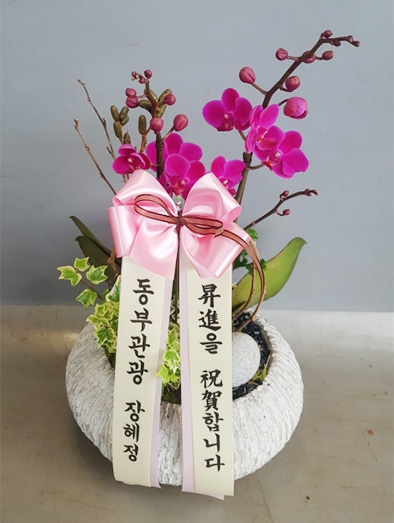 동부관광 장혜정
昇進을 祝賀합니다